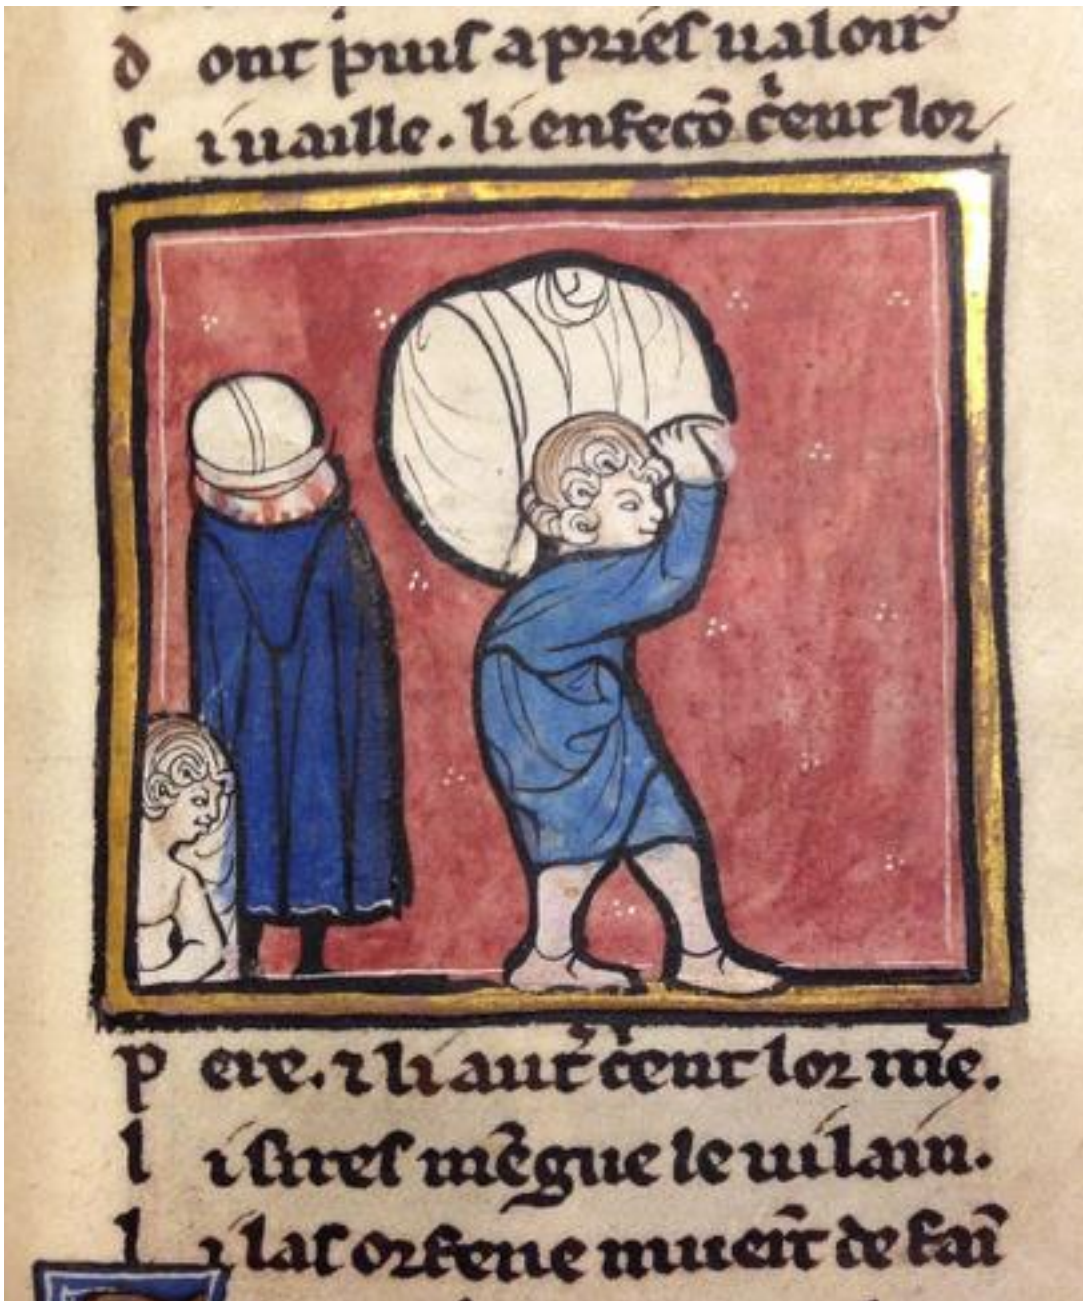 d ont puis apries ualoir
s i uaille. li enfecō c̄ent lor
p ere. ⁊ li aut̄ c̄ent lor m̄e.
l i sires mēgue le uilain.
l i las orfene mueȓt de faī